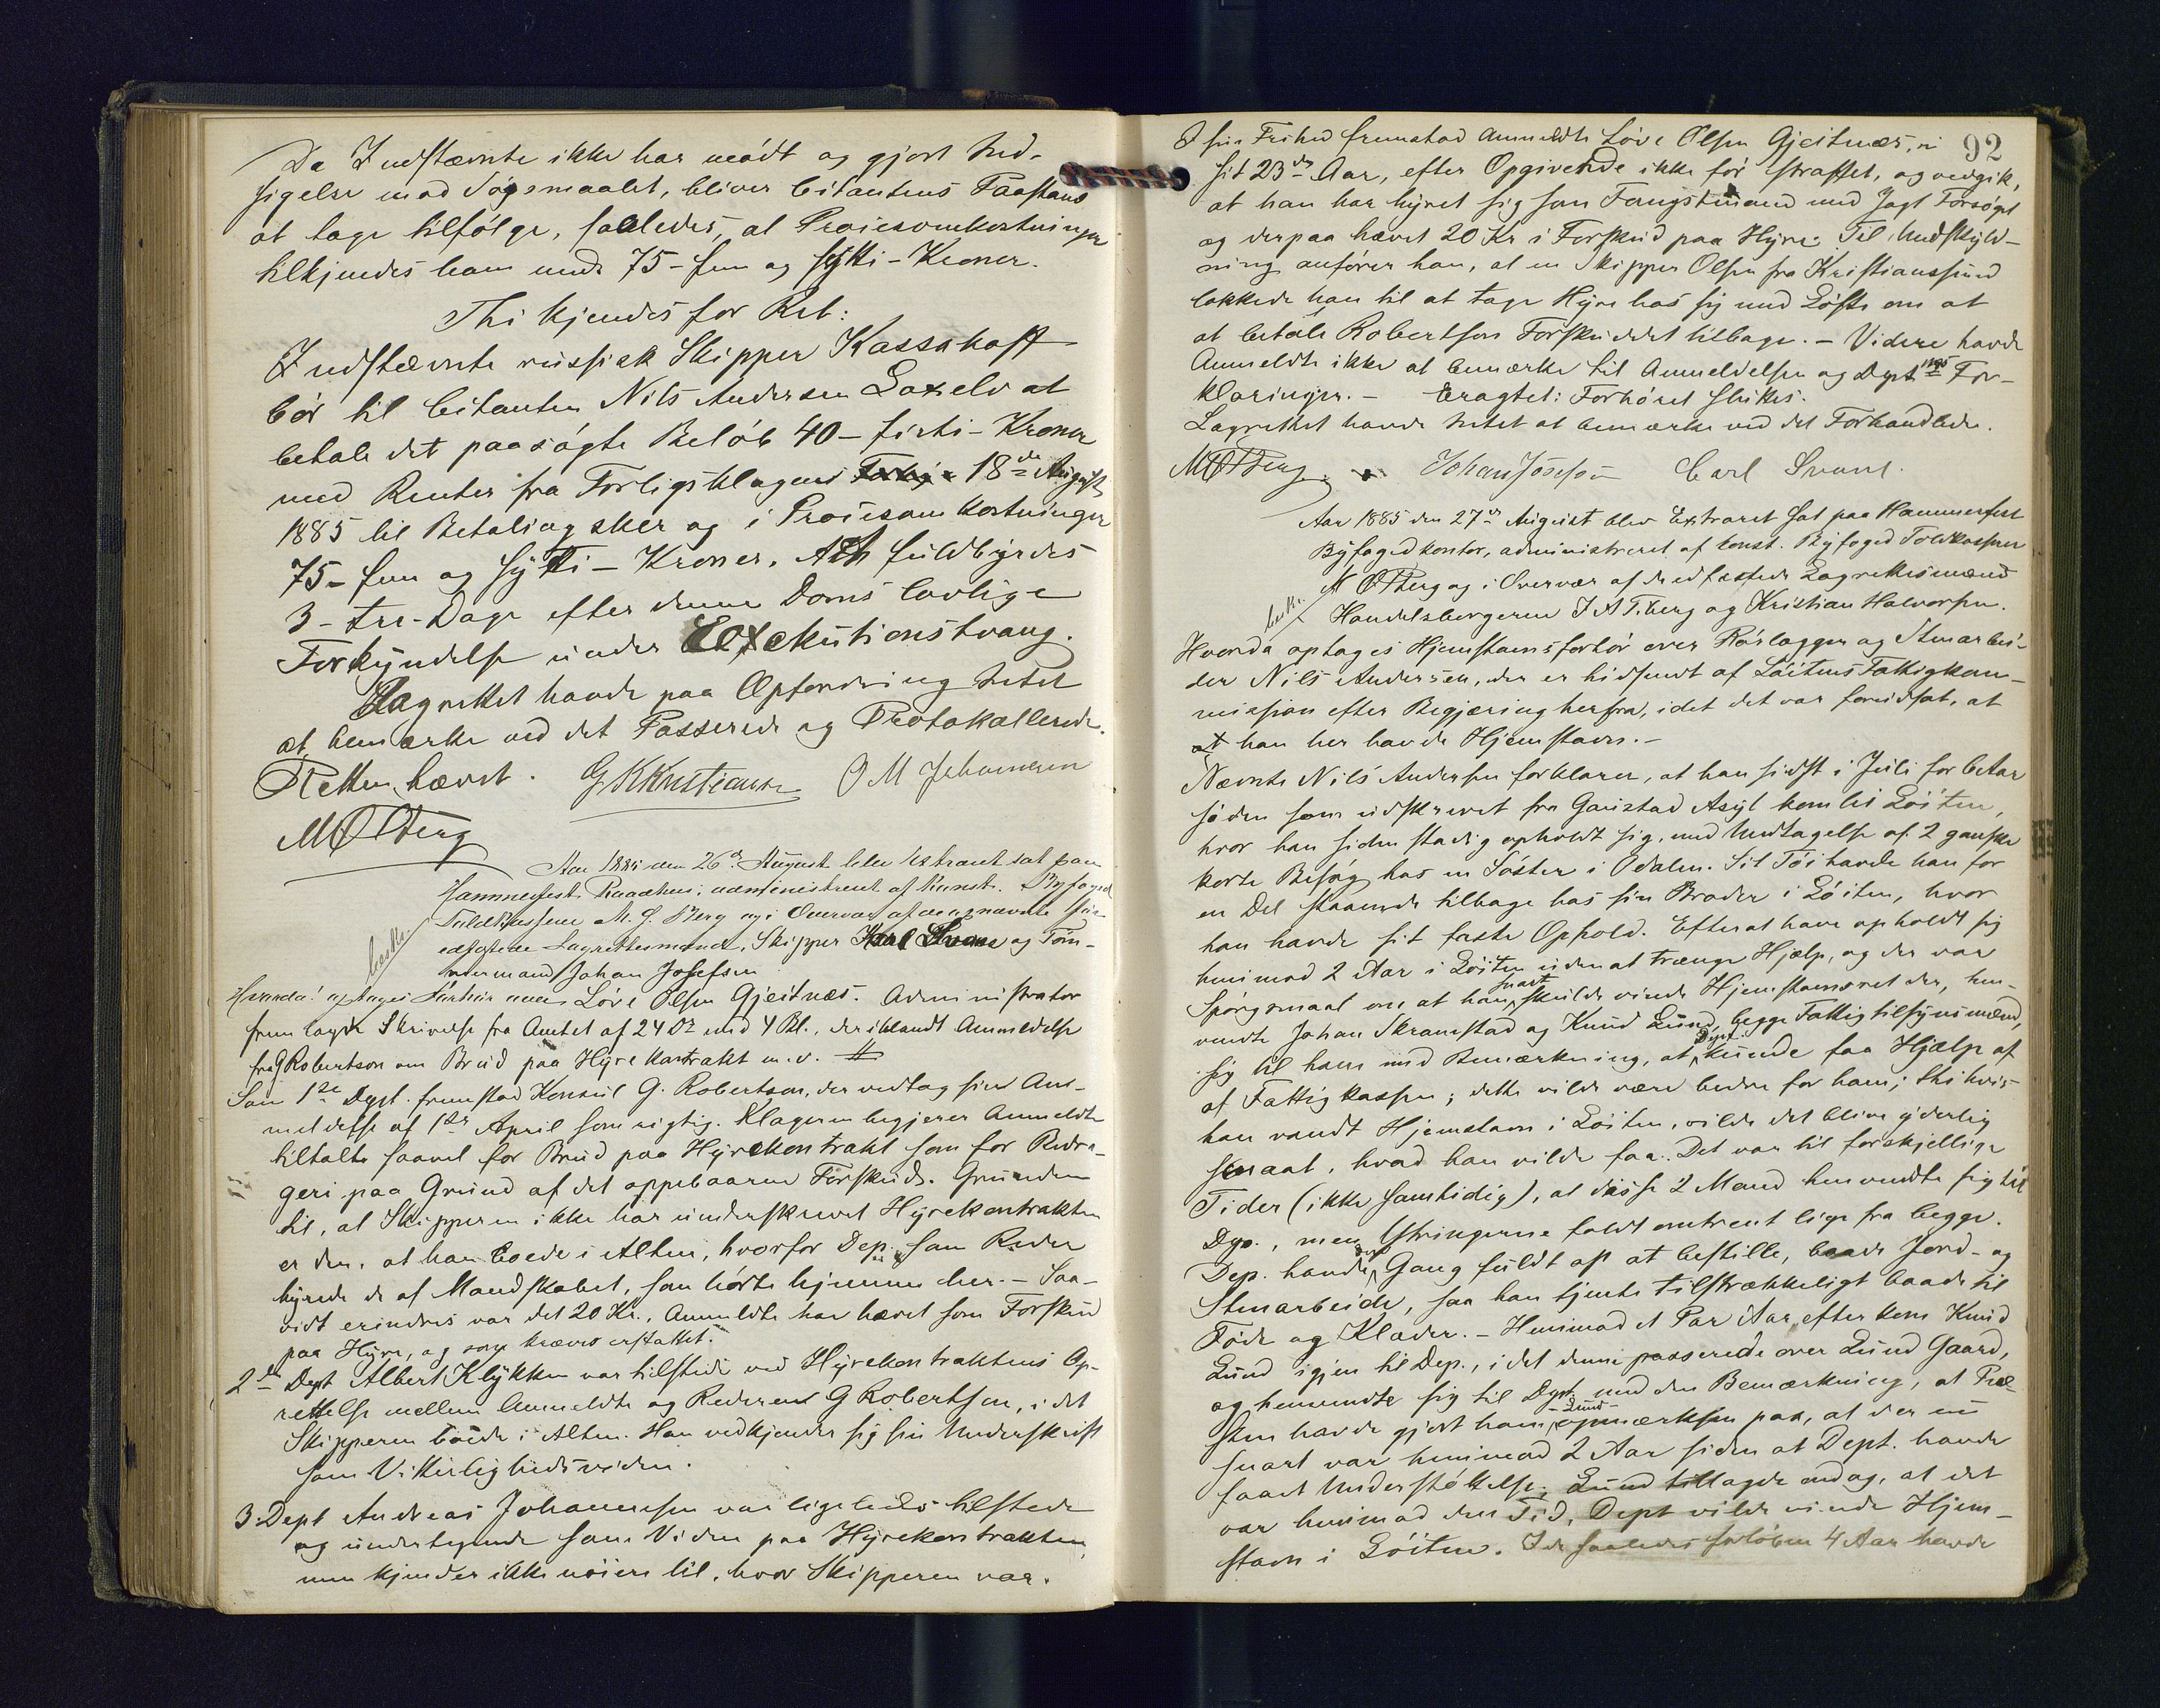 Da Indstævnte ikke har mødt og gjort Ind-
sigelse mod Søgsmaalet, bliver Citantens Paastand
at tage tilfølge, saaledes, at Procesomkostninger
tilkjendes ham med 75 - fem og sytti - Kroner.
Thi kjendes for Ret:
Indstævnte russisk Skipper Kassakoff
bør til Citanten Nils Andersen Laxelv at
betale det paasøgte Beløb 40 - firti - Kroner
med Renter fra Forligsklagens 18de August
1885 til Betaling sker og i Procesomkostninger
75 - fem og sytti - Kroner. At fuldbyrdes
3 - tre - Dage efter denne Doms lovlige
Forkyndelse under Exekutionstvang.
Lagrettet havde paa Opfordring Intet
at bemærke ved det Passerede og Protokollerede.
Retten hævet. G K Kristiansen O M Johannesen
M O Berg
Aar 1885 den 26de August blev Extraret sat paa
Hammerfest Raadhus, administreret af Konst. Byfoged
Toldkasserer M. O. Berg og i Overvær af de nævnte
edfæstede Lagrettesmænd, Skipper Karl Svane og Tøm-
mermand Johan Josefsen
Hvorda: optages Forhør over Løve Olsen Gjeitnæs. Administrator
fremlagde Skrivelse fra Amtet af 24 Ds med 4 Bl., deriblandt Anmeldelse
fra G Robertson om Brud paa Hyrekontrakt m. v.
Som 1ste Dept. fremstod Konsul G. Robertson, der vedtog sin An-
meldelse af 1ste April som rigtig. Klageren begjerer Anmeldte
tiltalte saavel for Brud paa Hyrekontrakt som for Bedra-
geri paa Grund af det oppebaarne Forskud. Grunden
til, at Skipperen ikke har underskrevet Hyrekontrakten
er den, at han boede i Alten, hvorfor Dep. som Reder
hyrede de af Mandskabet, som hørte hjemme her. - Saa-
vidt erindres var det 20 Kr., Anmeldte har hævet som Forskud
paa Hyre, og som kræves erstattet.
2den Dept Albert Klykken var tilstede ved Hyrekontraktens Op-
rettelse mellem Anmeldte og Rederen G Robertson, idet
Skipperen boede i Alten. Han vedkjender sig sin Underskrift
som Vitterlighedsvidne.
3. Dept Andreas Johannessen var ligeledes tilstede
og undertegnede som Vidne paa Hyrekontrakten,
men kjender ikke nøiere til, hvor Skipperen var.
92
I sin Frihed fremstod Anmeldte Løve Olsen Gjeitnæs, i
sit 23de Aar, efter Opgivende ikke før straffet, og vedgik,
at han har hyret sig som Fangstmand med Jagt Forsøget
og derpaa hævet 20 Kr i Forskud paa Hyre. Til Undskyld-
ning anfører han, at en Skipper Olsen fra Kristianssund
lokkede ham til at tage Hyre hos sig med Løfte om at
at betale Robertson Forskuddet tilbage. - Videre havde
Anmeldte ikke at bemærke til Anmeldelsen og Dept nes For-
klaringer. - Eragtet: Forhøret sluttes.
Lagrettet havde Intet at bemærke ved det Forhandlede.
M O Berg. Johan Josefson Carl Svane.
Aar 1885 den 27de August blev Extraret sat paa Hammerfest
Byfogedkontor, administreret af konst. Byfoged Toldkasserer
M O Berg og i Overvær af de edfæstede Lagrettesmænd
Handelsborgerne J A Tiberg og Kristian Halvorsen.
Hvorda optages Hjemstavnsforhør over Rørlægger og Stenarbei-
der Nils Andersen, der er hidsendt af Løitens Fattigkom-
mission efter Begjæring herfra, idet det var forudsat, at
at han her havde Hjemstavn. -
Nævnte Nils Andersen forklarer, at han sidst i Juli for 6 Aar
siden som udskrevet fra Gaustad Asyl kom til Løiten,
hvor han siden stadig opholdt sig, med Undtagelse af 2 ganske
korte Besøg hos en Søster i Odalen. Sit Tøi havde han for
en Del staaende tilbage hos sin Broder i Løiten, hvor
han havde sit faste Ophold. Efterat have opholdt sig
henimod 2 Aar i Løiten uden at trænge Hjælp, og der var
Spørgsmaal om at han snart skulde vinde Hjemstavnsret der, hen-
vendte Johan Skramstad og Knud Lund, begge Fattigtilsynsmænd,
sig til ham med Bemærkning, at Dept. kunde faa Hjælp af
af Fattigkassen; dette vilde være bedre for ham; thi hvis
han vandt Hjemstavn i Løiten, vilde det blive yderlig
smaat, hvad han vilde faa. Det var til forskjellige
Tider (ikke samtidig), at disse 2 Mænd henvendte sig til
Dep., men Ytringerne faldt omtrent lige fra begge.
Dep. havde den Gang fuldt op at bestille, baade Jord- og
Stenarbeide, saa han tjente tilstrækkeligt baade til
Føde og Klæder. - Henimod et Par Aar efter kom Knud
Lund igjen til Dep., idet denne passerede over Lund Gaard,
og henvendte sig til Dept. med den Bemærkning, at Præ-
sten havde gjort ham - Lund - opmærksom paa, at der nu
snart var henimod 2 Aar siden at Dept. havde
faaet Understøttelse; Lund tillagde endog, at det
var henimod den Tid, Dept vilde vinde Hjem-
stavn i Løiten. I de saaledes forløbne 4 Aar havde